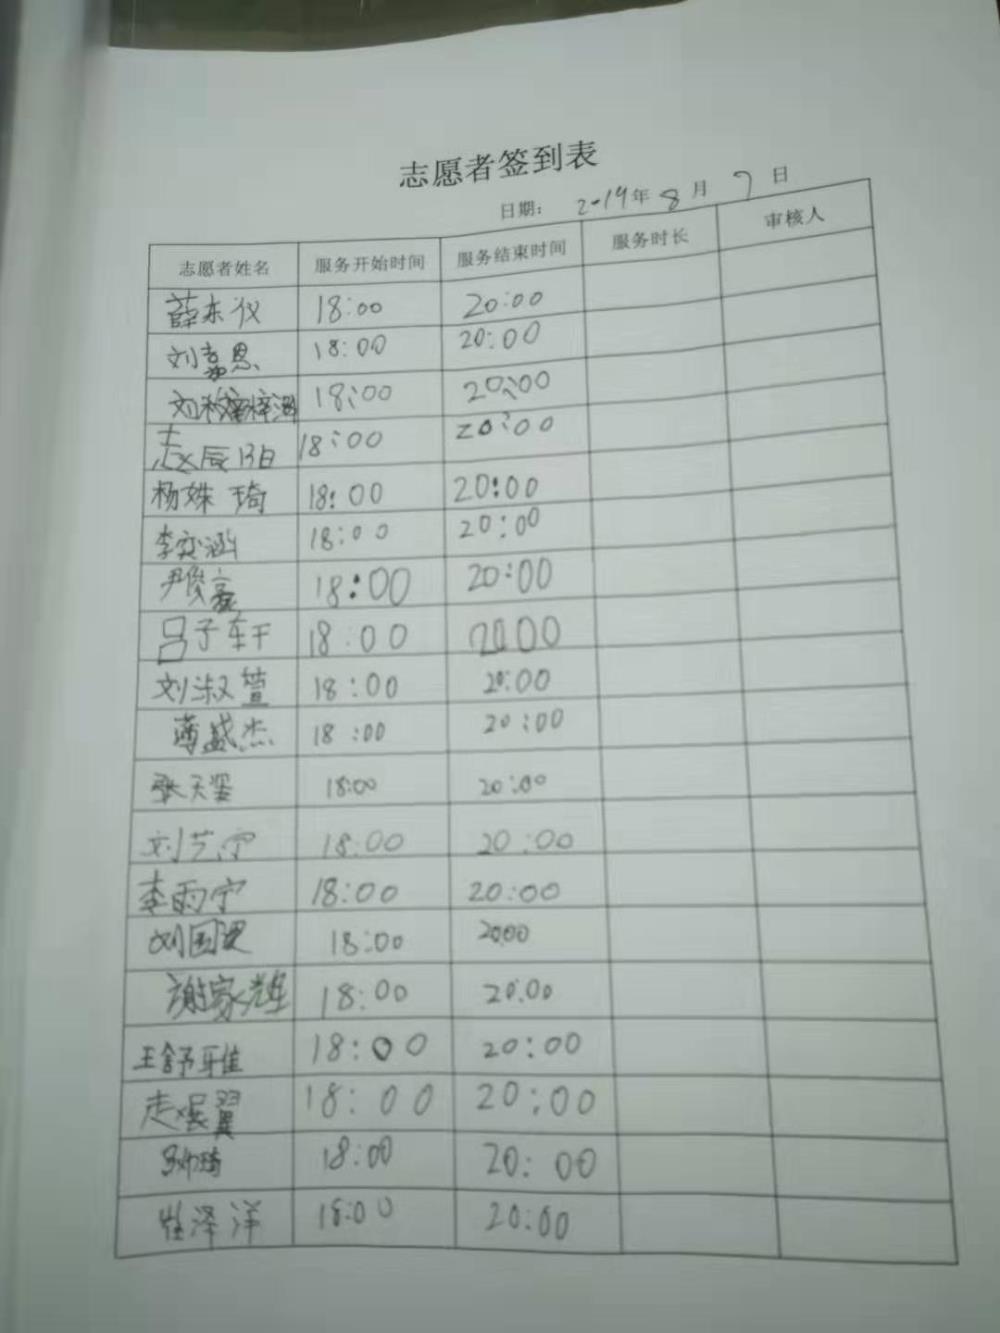 志愿者签到表
日期： 2019年 8 月 7 日
志愿者姓名 服务开始时间 服务结束时间 服务时长 审核人
薛东仪 18:00 20:00
刘嘉恩 18:00 20:00
18:00 20:00
赵辰阳 18:00 20:00
杨姝琦 18:00 20:00
李奕涵 18:00 20:00
尹俊豪 18:00 20:00
吕子轩 18:00 20:00
刘淑萱 18:00 20:00
薄盛杰 18:00 20:00
张天 18:00 20:00
刘艺宁 18:00 20:00
李雨宁 18:00 20:00
刘国 18:00 20:00
谢家辉 18:00 20:00
王舒雅 18:00 20:00
赵晨翼 18:00 20:00
18:00 20:00
泽洋 18:00 20:00